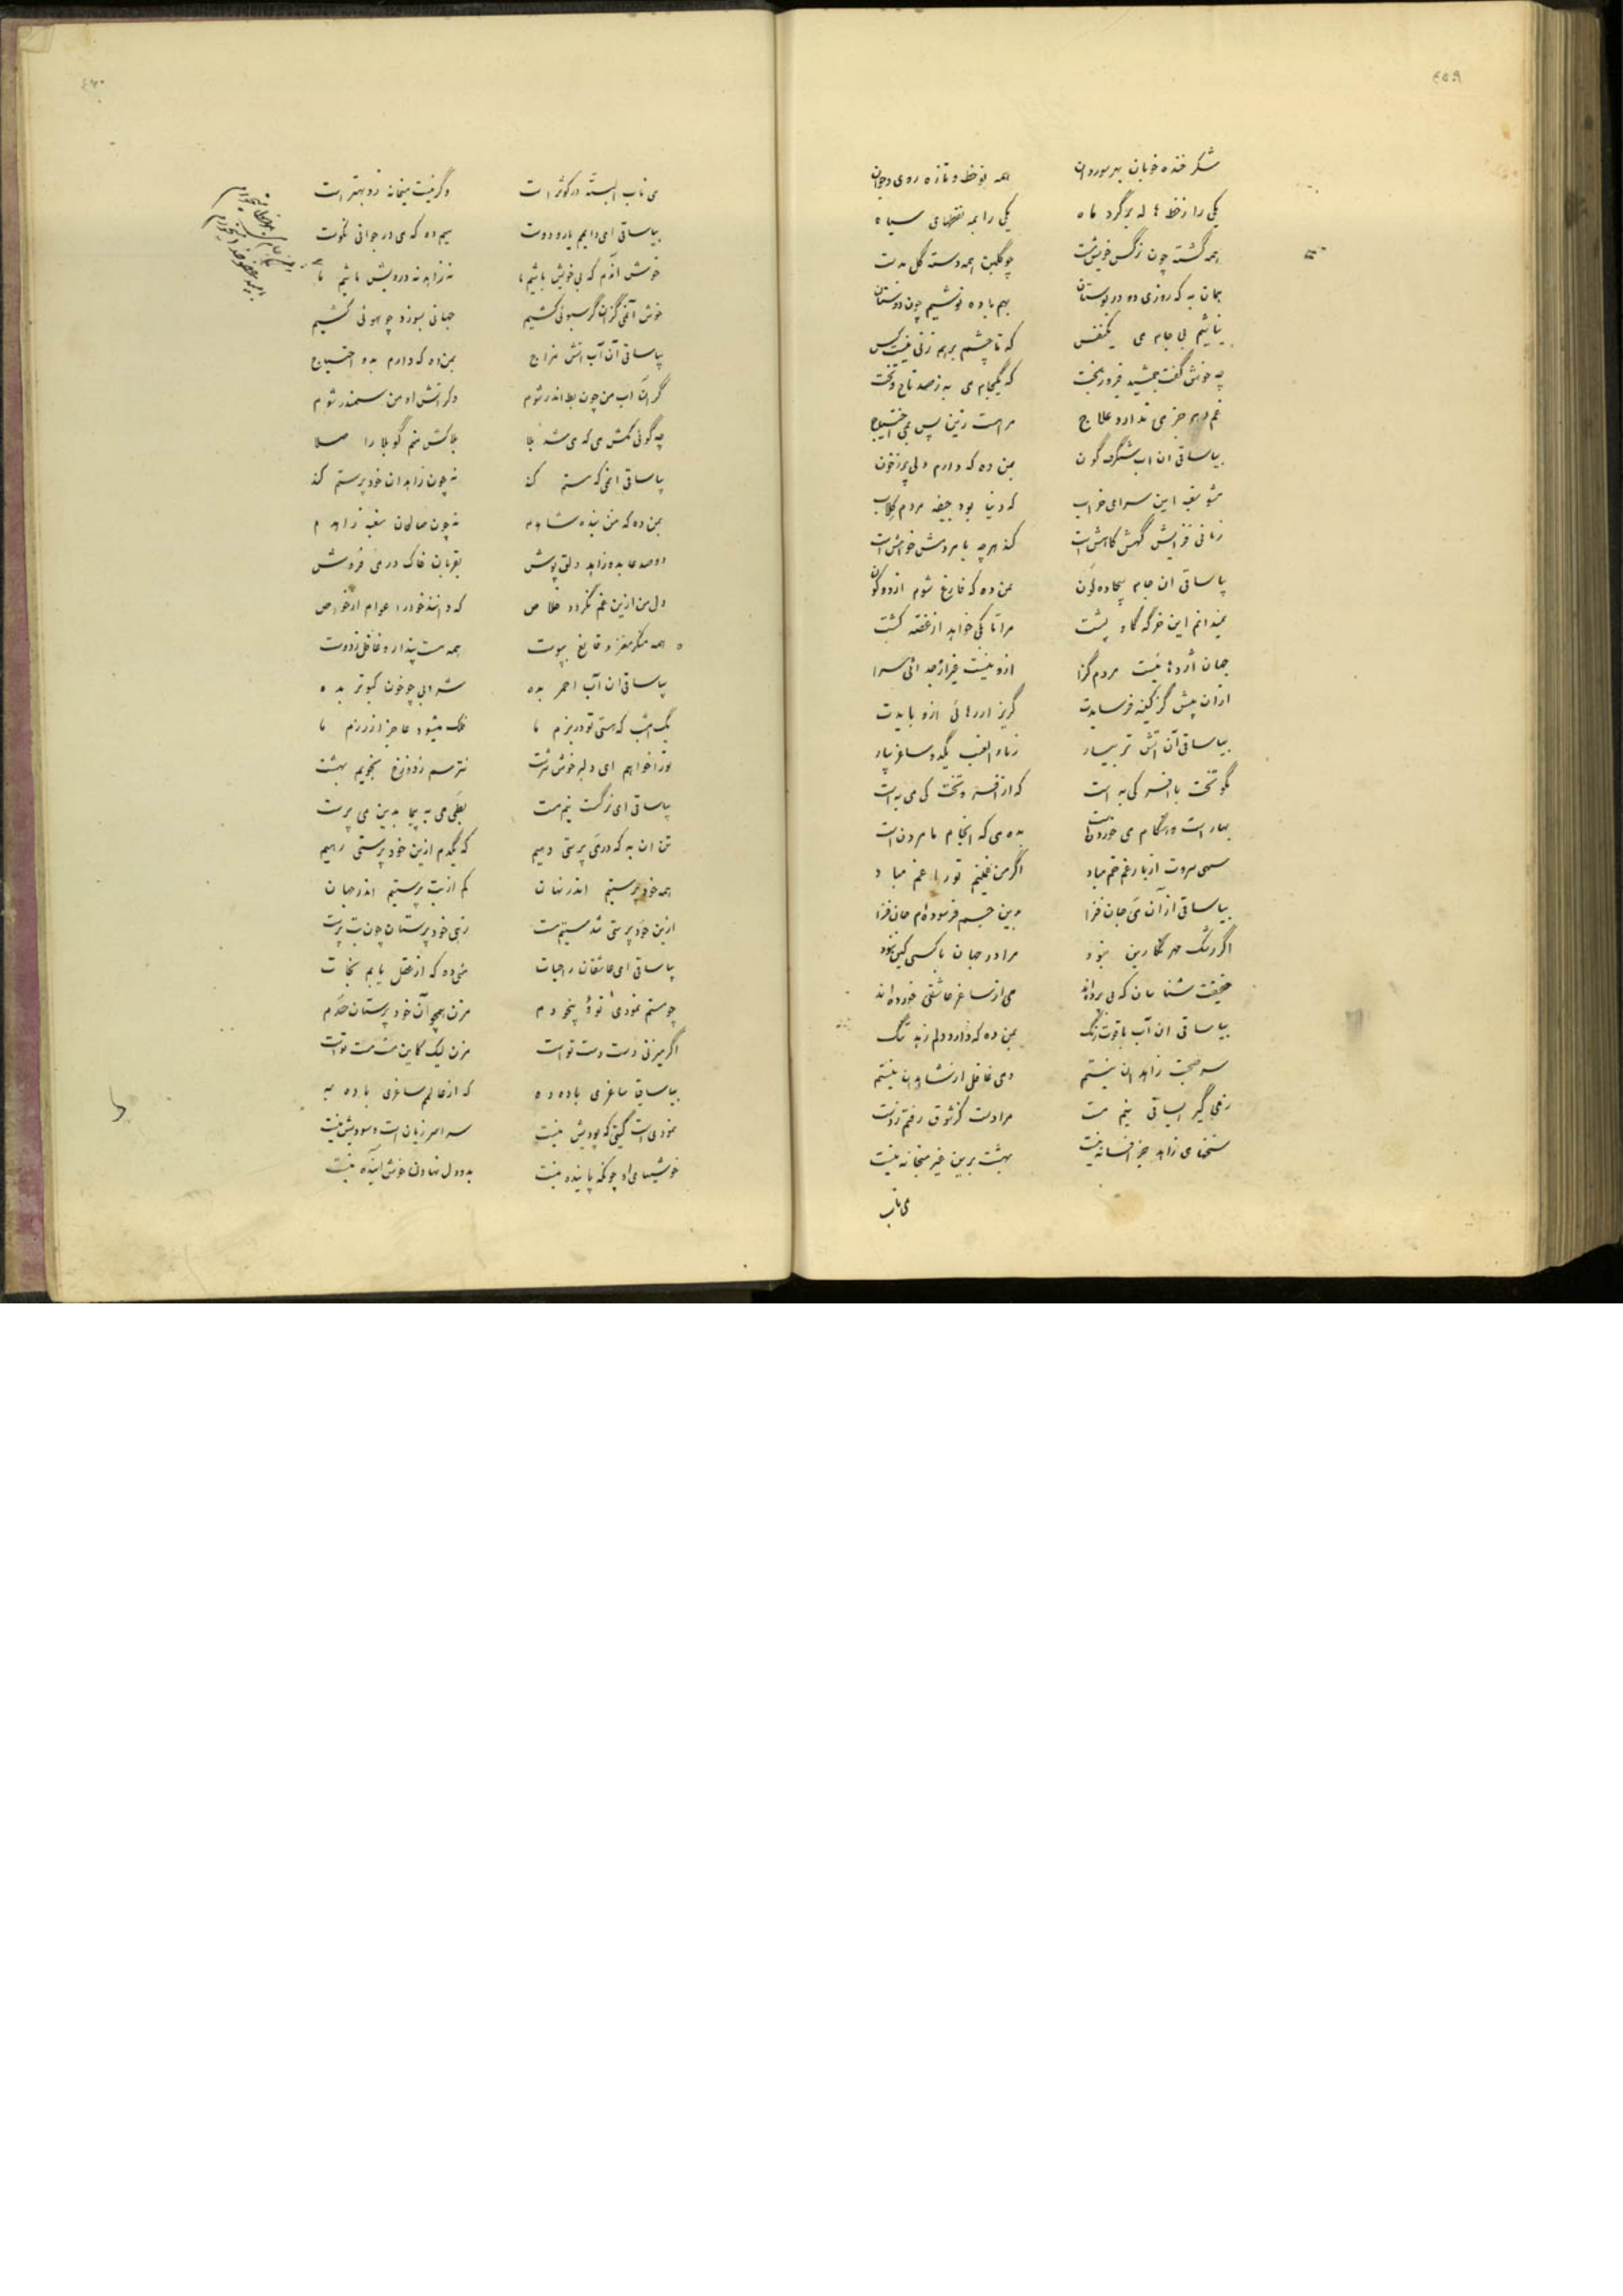 ۴۵۹
شکر خنده خوبان بهر سو روان همه نوخط و تازه روی و جوان
یکی را ز خط هاله بر گرد ماه یکی را همه نقطهای سیاه
همه گشته چون نرگس خویش مست چو گلبن همه دسته گل بدست
همان به که روزی دو در بوستان بهم باده نوشیم چون دوستان
نباشیم بی جام می یکنفس که تا چشم بر هم زنی نیست کس
چه خوش گفت جمشید فیروزبخت که یکجام می به ز صد تاج و تخت
غم دهر جز می ندارد علاج مراهست زین پس بمی احتیاج
بیا ساقی ان اب شنگرف گون بمن ده که دارم دلی پر ز خون
مشو سغبه این سرای خراب که دنیا بود جیفه مردم کلاب
زمانی فزایش گهش کاهش است کند هرچه با مردمش خواهش است
بیا ساقی ان جام بیجاده گون بمن ده که فارغ شوم از دو کون
نمیدانم این خرگه گاو پشت مرا تا بکی خواهد از غصه کشت
جهان اژدهائیست مردم گزا ازو نیست غیر از جدائی سرا
ازان پیش گز کینه فرسایدت گریز از رهائی ازو بایدت
بیا ساقی آن آتش تر بیار ز ماء العنب یکدو ساغر بیار
مگو تخت با افسر کی به است که از افسر و تخت کی می به است
بهار است و هنگام می خوردنست بده می که انجام ما مردن است
سهی سروت از باد غم خم مباد اگر من غمینم تو را غم مباد
بیا ساقی از آن می جان فزا بین جسم فرسوده‌ام جان فزا
اگر رشک مهر نگارین نبود مرا در جهان با کسی کین نبود
حقیقت شناسان که پی برده‌اند می از ساغر عاشقی خورده‌اند
بیا ساقی ان آب یاقوت رنگ بمن ده که دارد دلم زهد تنگ
سر صحبت زاهدان نیستم دمی غافل از شاهدان نیستم
زمی گیر ایساقی نیم مست مرا دست کز شوق رفتم ز دست
سخنهای زاهد جز افسانه نیست بهشت برین غیر میخانه نیست
می ناب
می ناب البته در کوثر است وگر نیست میخانه زو بهتر است
بیا ساقی ای دایمم یار و دوست بیم ده که می در جوانی نکوست
خوش اندم که بی خویش باشیم ما نه زاهد نه درویش باشیم ما
خوش آنمی گزان گر سبوئی کشیم جهانی بسوزد چو هوئی کشیم
بیا ساقی آن آب اتش مزاج بمن ده که دارم بدو احتیاج
گر ان آب من چون بط اندر شوم وگر اتش او من سمندر شوم
چه گوئی مکش می که می شد بلا بلاکش منم گو بلا را صلا
بیا ساقی انمی که مستم کند نه چون زاهدان خود پرستم کند
بمن ده که من بنده شاهدم نه چون صالحان سغبه زاهدم
دو صد عابد و زاهد دلق پوش بقربان خاک در می فروش
دل من ازین غم نگردد خلاص که دانند خود را عوام از خواص
همه منکر مغز و قانع بپوست همه مست پندار و غافل ز دوست
بیا ساقی ان آب احمر بده شرابی چو خون کبوتر بده
یک امشب که هستی تو در بزم ما فلک میشود عاجز از رزم ما
تو را خواهم ای دلبر خوش سرشت نترسم ز دوزخ نجویم بهشت
بیا ساقی ای نرگست نیم مست بطی می به پیما بدین می پرست
تن ان به که در می پرستی دهیم که یکدم ازین خود پرستی رهیم
همه خود پرستیم اندر نهان کم از بت پرستیم اندر جهان
ازین خود پرستی شدستیم مست زهی خود پرستان چون بت پرست
بیا ساقی ای عاشقان را حیات میی ده که از عقل یابم نجات
چو مستم نمودی تو و بیخودم مزن همچو آن خود پرستان حدم
اگر میزنی دست دست تو است مزن لیک کاین مست مست تو است
بیا ساقی ساغری باده ده که از عالمم ساغری باده به
نمودی است گیتی که بودیش نیست سراسر زیان است و سودیش نیست
خوشیهای او چونکه پاینده نیست بدو دل نهادن خوش آینده نیست